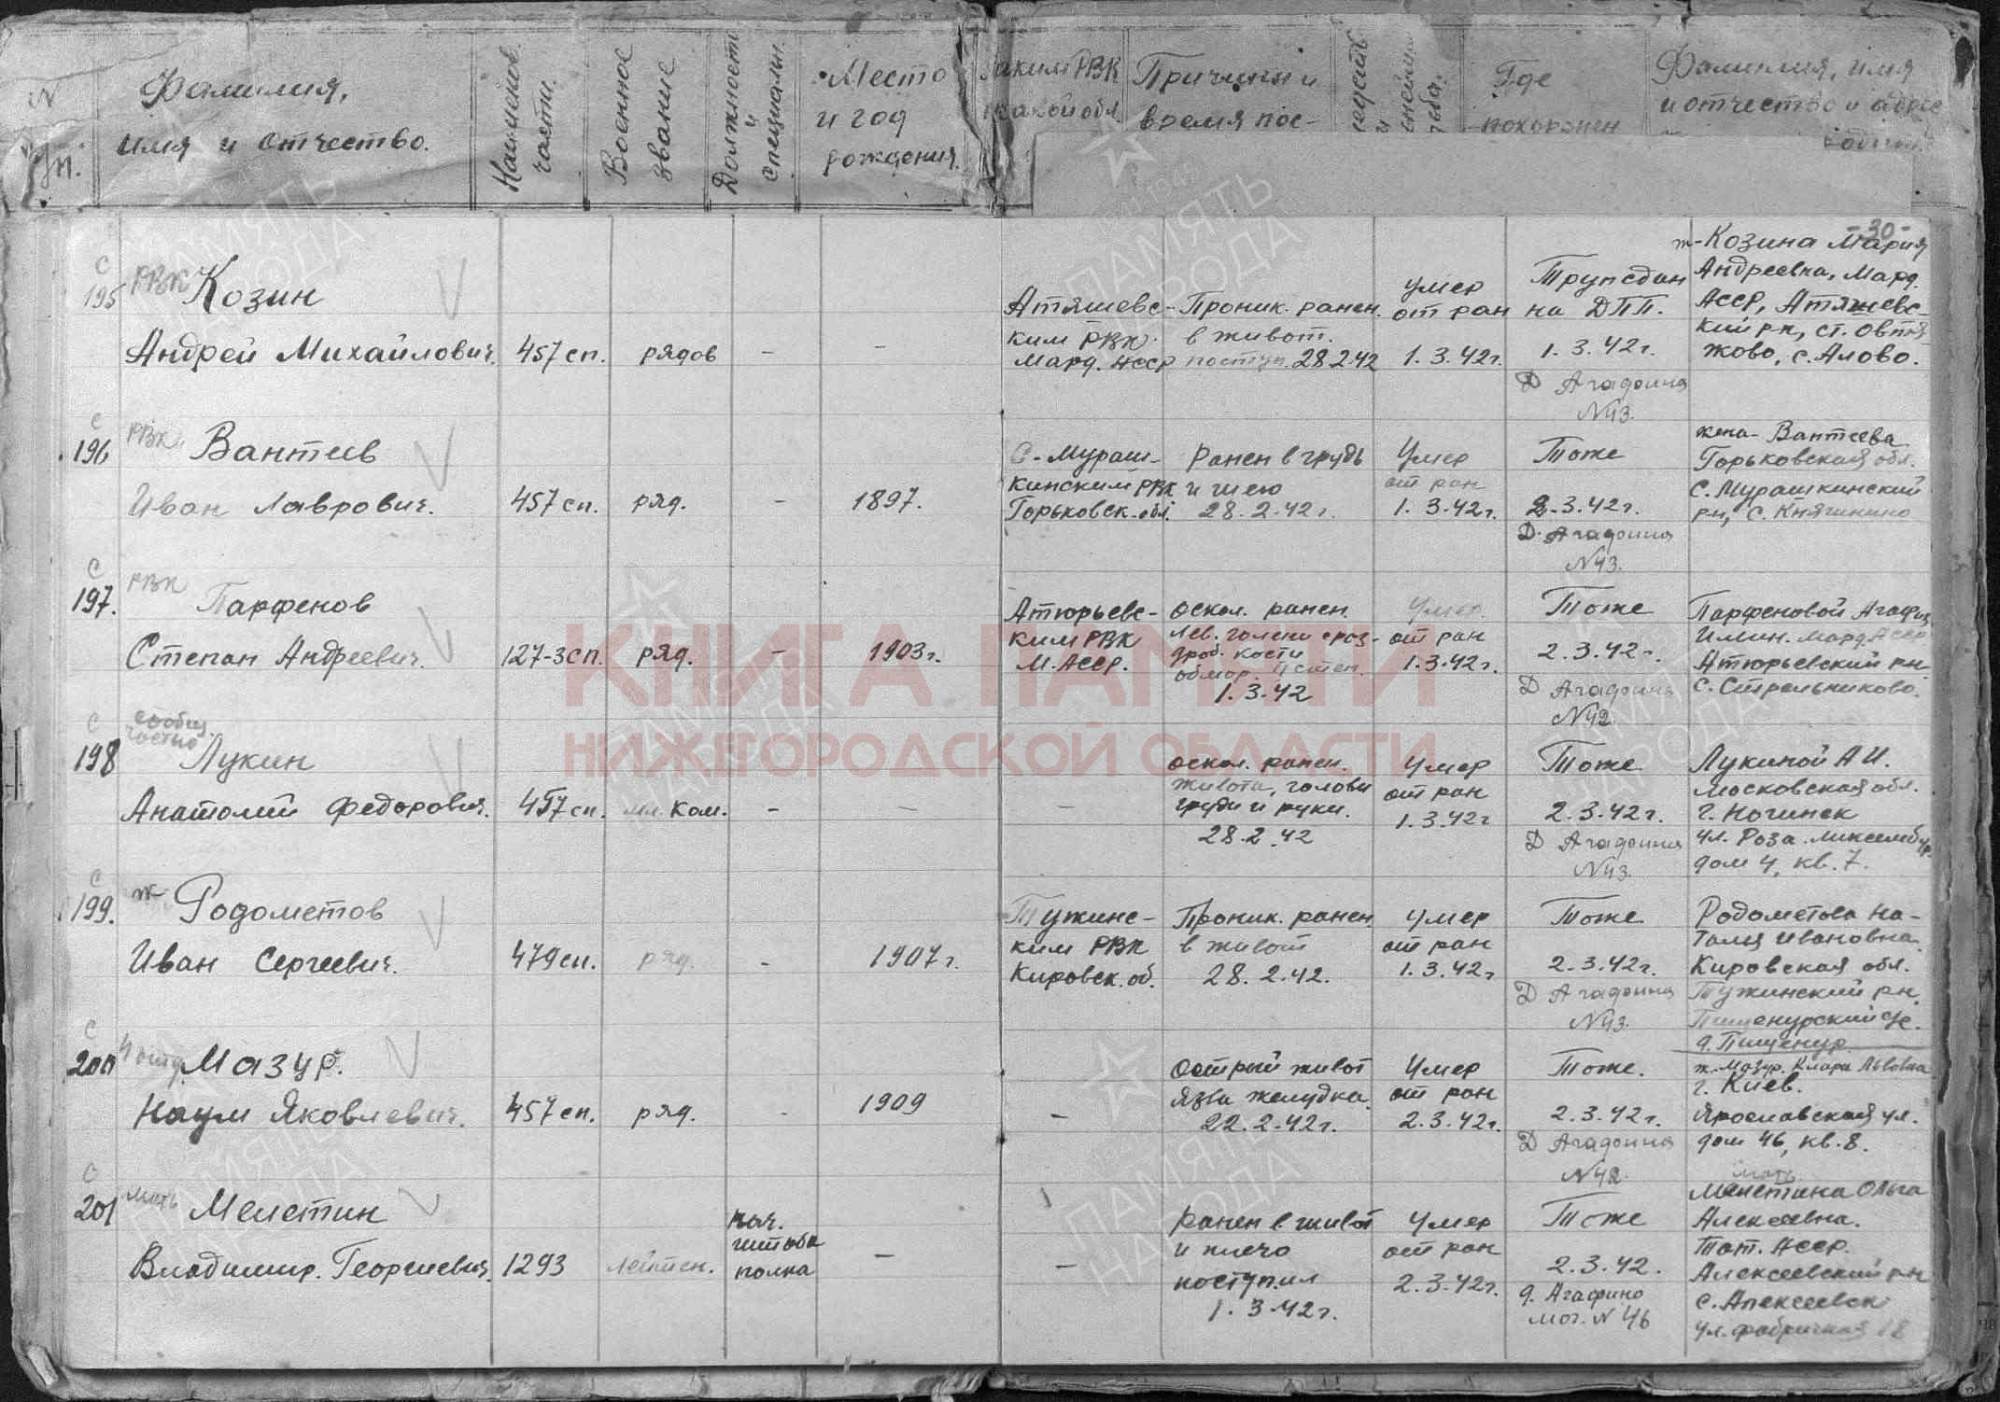 N
п.
Фамилия,
имя и отчество.
Наименов.
части.
Военное
звание
Должность
и
специальн.
Место
и год
рождения.
каким РВК
какой обл.
Причины и
время пос-
Где
похоронен
Фамилия, имя
и отчество и адрес
-30-
с
195 РВК Козин
Андрей Михайлович. 457 сп. рядов - -
Атяшевс-
ким РВК
Морд. АССР
Проник. ранен.
в живот.
поступ. 28.2.42
умер
от ран
1.3.42г.
Труп сдан
на ДПП.
1.3.42г.
Д Агафонина
N43.
ж-Козина Мария
Андреевна, Морд.
АССР, Атяшевс-
кий рн, ст.
жово, с. Алово.
с
196 РВК Вантеев
Иван Лаврович. 457 сп. ряд. - 1897.
С-Мураш-
кинским РВК
Горьковск. обл.
Ранен в грудь
и шею
28.2.42г.
Умер
от ран
1.3.42г.
Тоже
2.3.42г.
Д. Агафонина
N43.
жена- Вантеева
Горьковская обл.
С. Мурашкинский
рн, с. Княгинино
с
197. РВК Парфенов
Степан Андреевич. 127-зсп. ряд. - 1903г.
Атюрьевс-
ким РВК
М. АССР.
оскол. ранен.
лев. голени с роз-
дроб. кости
1.3.42
Умер
от ран
1.3.42г.
Тоже
2.3.42г.
Д Агафонина
N42
Парфеновой Агафье
Морд. АССР
Атюрьевский рн
с. Стрельниково.
с
198 сообщ. частью Лукин
Анатолий Федорович. 457 сп. мл. ком. - - -
оскол. ранен.
живота, головы
груди и руки.
28.2.42
Умер
от ран
1.3.42г
Тоже
2.3.42г.
Д Агафонина
N43.
Лукиной А И.
Московская обл.
г. Ногинск
ул. Роза Люксембур.
дом 4, кв. 7.
с
199. ж Родометов
Иван Сергеевич. 479 сп. ряд. - 1907г.
Тужинс-
ким РВК
Кировск. об.
Проник. ранен.
в живот
28.2.42.
Умер
от ран
1.3.42г
Тоже
2.3.42г.
Д Агафонина
N43.
Родометова На-
талья Ивановна.
Кировская обл.
Тужинский рн.
д. Пищенур
с
200 Мазур.
Наум Яковлевич. 457 сп. ряд. - 1909
-
Острый живот
Язва желудка.
22.2.42г.
Умер
от ран
2.3.42г.
Тоже.
2.3.42г.
Д Агафонина
N42.
ж. Мазур. Клара Львовна
г. Киев.
Ярославская ул.
дом 46, кв. 8.
с
201 мать Мелетин
Владимир. Георгиевич 1293 лейтен.
нач.
штаба
полка
-
-
ранен в живот
и плечо
поступил
1.3.42г.
Умер
от ран
2.3.42г.
Тоже
2.3.42.
д. Агафонино
мог. N 46
мать
Мелетина Ольга
Алексеевна.
Тат. АССР.
Алексеевский рн
с. Алексеевск
ул. Фабричная 18
КНИГА ПАМЯТИ
НИЖЕГОРОДСКОЙ ОБЛАСТИ
ПАМЯТЬ
НАРОДА